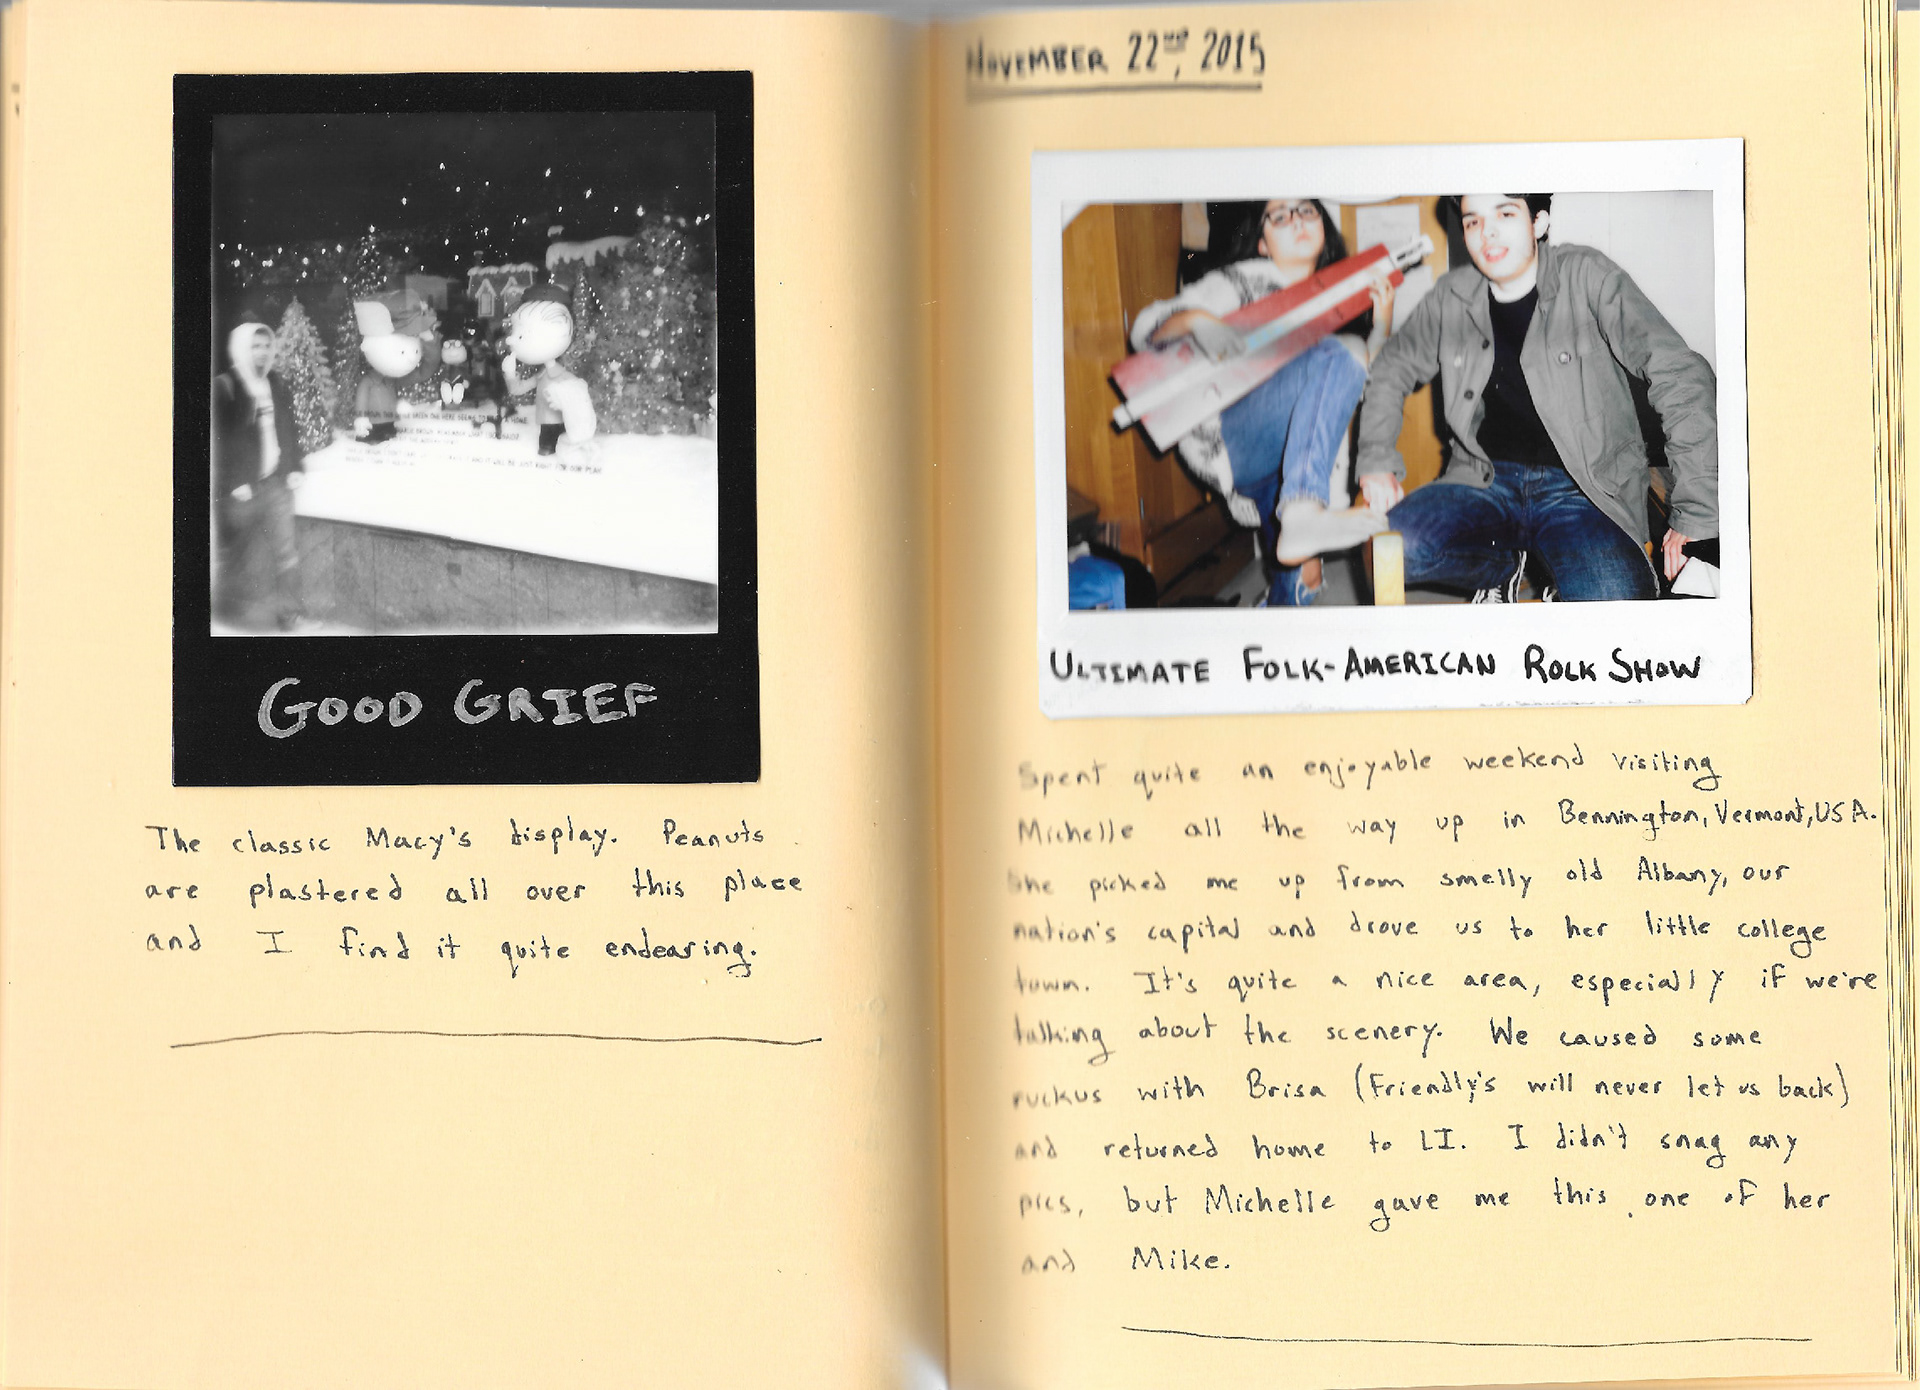 GOOD GRIEF
The classic Macy's display. Peanuts
are plastered all over this place
and I find it quite endearing.
NOVEMBER 22ND, 2015
ULTIMATE FOLK-AMERICAN ROCK SHOW
Spent quite an enjoyable weekend visiting
Michelle all the way up in Bennington, Vermont, USA.
She picked me up from smelly old Albany, our
nation's capital and drove us to her little college
town. It's quite a nice area, especially if we're
talking about the scenery. We caused some
ruckus with Brisa (Friendly's will never let us back)
and returned home to LI. I didn't snag any
pics, but Michelle gave me this one of her
and Mike.